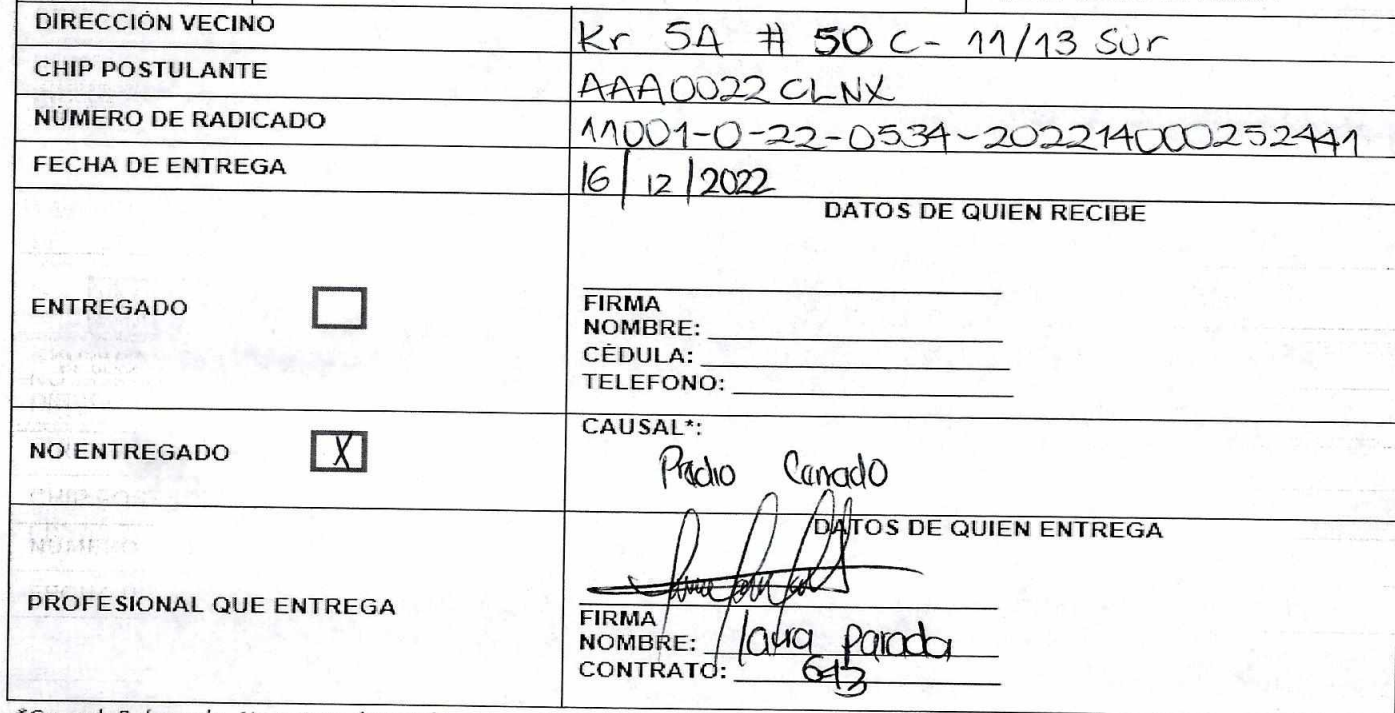 DIRECCIÓN VECINO Kr 5A # 50 C - 11/13 Sur
CHIP POSTULANTE AAA0022CLNX
NÚMERO DE RADICADO 11001-0-22-0534-202214000252441
FECHA DE ENTREGA 16/12/2022
DATOS DE QUIEN RECIBE
ENTREGADO
FIRMA
NOMBRE:
CÉDULA:
TELEFONO:
NO ENTREGADO X
CAUSAL*:
Predio Cerrado
DATOS DE QUIEN ENTREGA
PROFESIONAL QUE ENTREGA
FIRMA
NOMBRE: laura parada
CONTRATO: 643